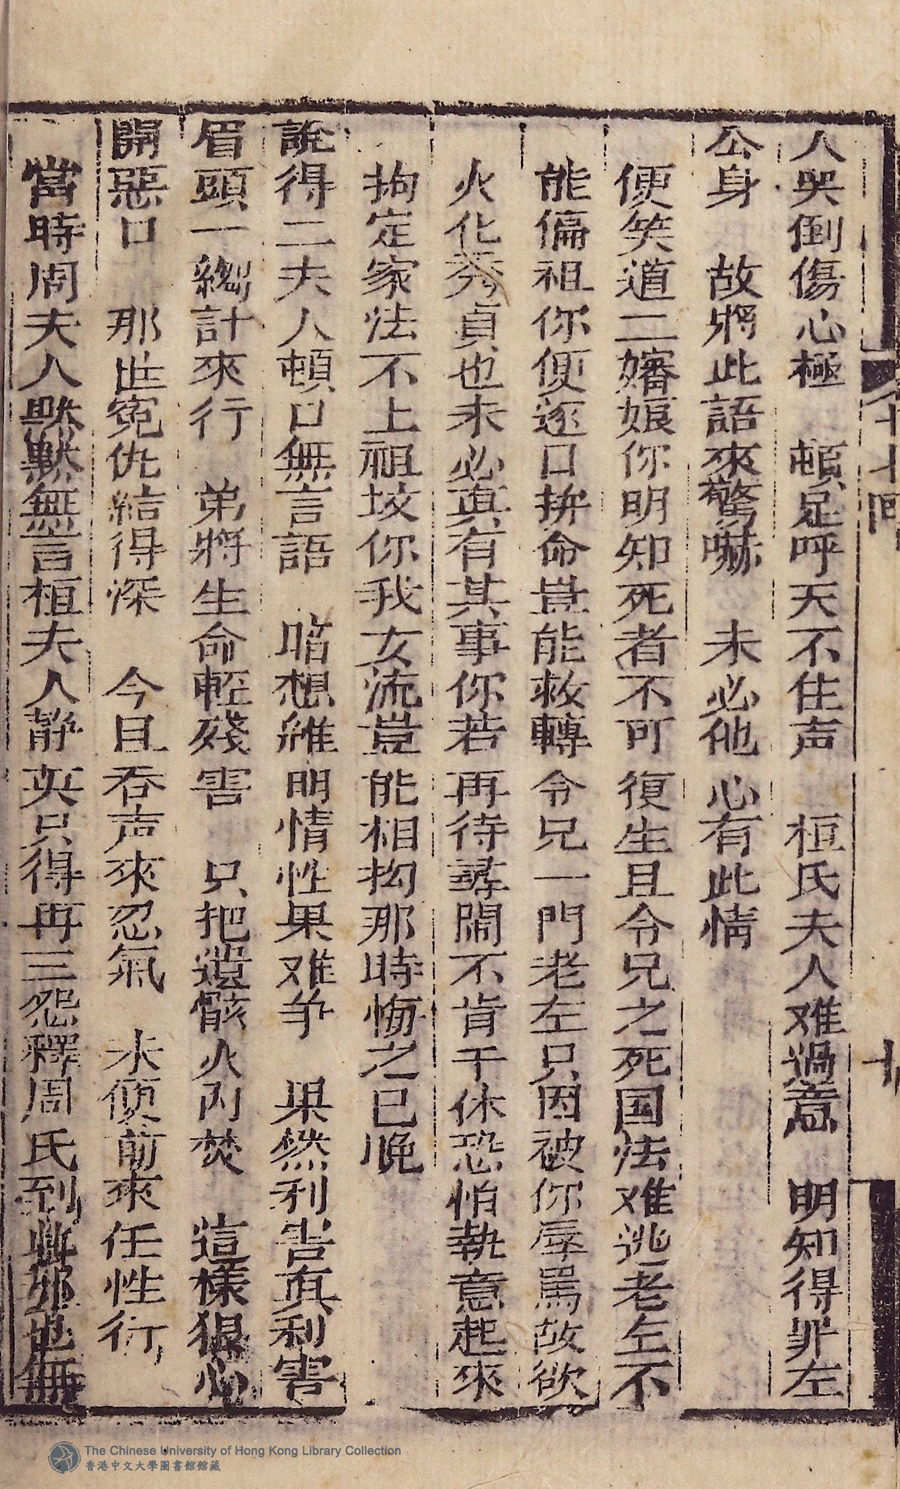 人哭倒傷心極　頓足呼天不住声　桓氏夫人难過意　明知得罪左
公身　故將此語來驚嚇　未必他心有此情
便笑道二嬸娘你明知死者不可復生且令兄之死国法难逃老左不
能偏祖你便逐口拚命豈能救轉令兄一門老左只因被你辱罵故欲
火化秀貞也未必真有其事你若再待尋鬧不肯干休恐怕執意起來
拘定家法不上祖坟你我女流豈能相拘那時悔之已晚
說得二夫人頓口無言語　暗想維明情性果难爭　果然利害真利害
眉頭一縐計來行　弟將生命輕殘害　只把遺骸火內焚　這樣狠心
開惡口　那世冤仇結得深　今且吞声來忍氣　未便前來任性行
當時周夫人默默無言桓夫人靜英只得再三怨釋周氏到此也無
十七回
十
The Chinese University of Hong Kong Library Collection
香港中文大學圖書館館藏